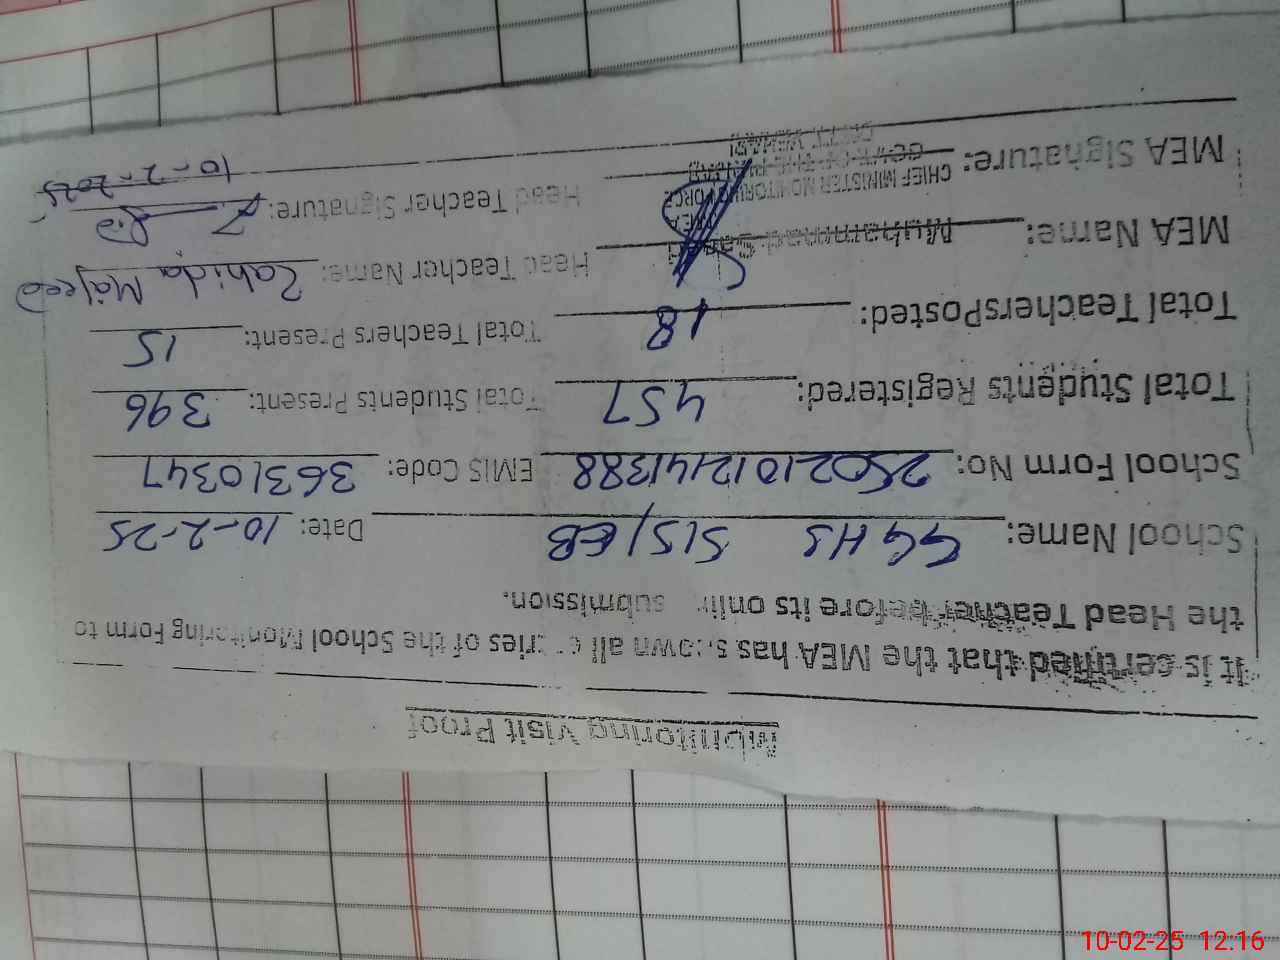 Monitoring Visit Proof
It is certified that the MEA has shown all entries of the School Monitoring Form to
the Head Teacher before its online submission.
School Name: GGHS 515/EB Date: 10-2-25
School Form No: 2502101241388 EMIS Code: 36310347
Total Students Registered: 457 Total Students Present: 396
Total Teachers Posted: 18 Total Teachers Present: 15
MEA Name: Muhammad Head Teacher Name: Zahida Majeed
MEA
MEA Signature: CHIEF MINISTER MONITORING FORCE Head Teacher Signature:
10-2-2025
10-02-25 12.16